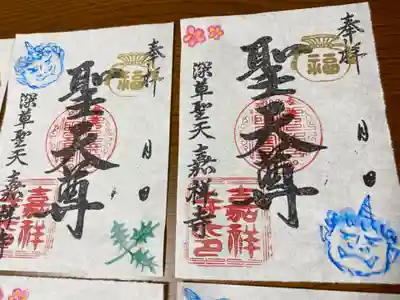 奉拝
福
聖天尊
月 日
深草聖天 嘉祥寺
嘉祥
奉拝
福
聖天尊
月 日
深草聖天 嘉祥寺
嘉祥
寺之印